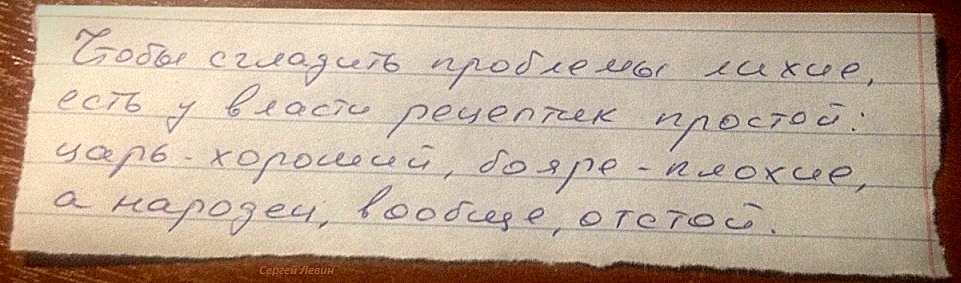 Чтобы сгладить проблемы лихие,
есть у власти рецептик простой:
царь - хороший, бояре - плохие,
а народец, вообще, отстой.
Сергей Левин